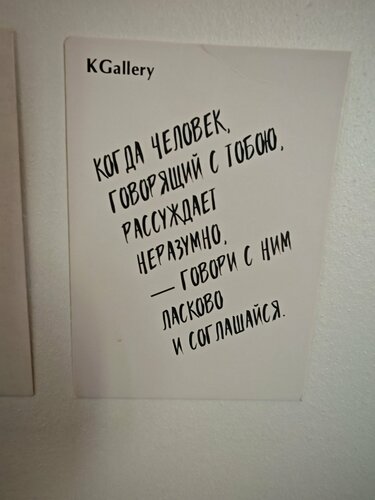 KGallery
КОГДА ЧЕЛОВЕК,
ГОВОРЯЩИЙ С ТОБОЮ,
РАССУЖДАЕТ
НЕРАЗУМНО,
— ГОВОРИ С НИМ
ЛАСКОВО
И СОГЛАШАЙСЯ.